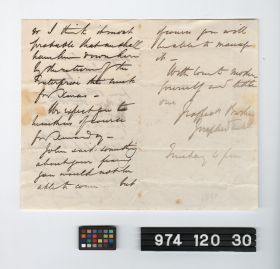 so I think it most
probable that we shall
have him down here
by the return of the
Enterprise this week
for Xmas -
We expect you to
luncheon of course
for Xmas day -
John said something
about your fearing
you would not be
able to come - but
of course you will
be able to manage
it -
With love to mother
yourself and little
one
Brother
Tuesday 4 pm
974 120 30